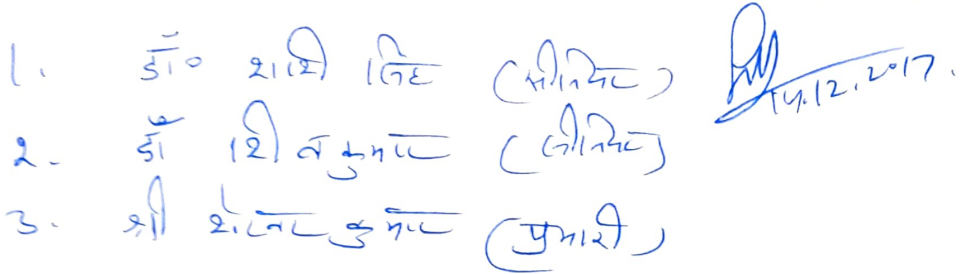 1. डॉ० शशि सिंह (सीनियर) 14.12.2017.
2. डॉ शिव कुमार (सीनियर)
3. श्री कुमार (प्रभारी)